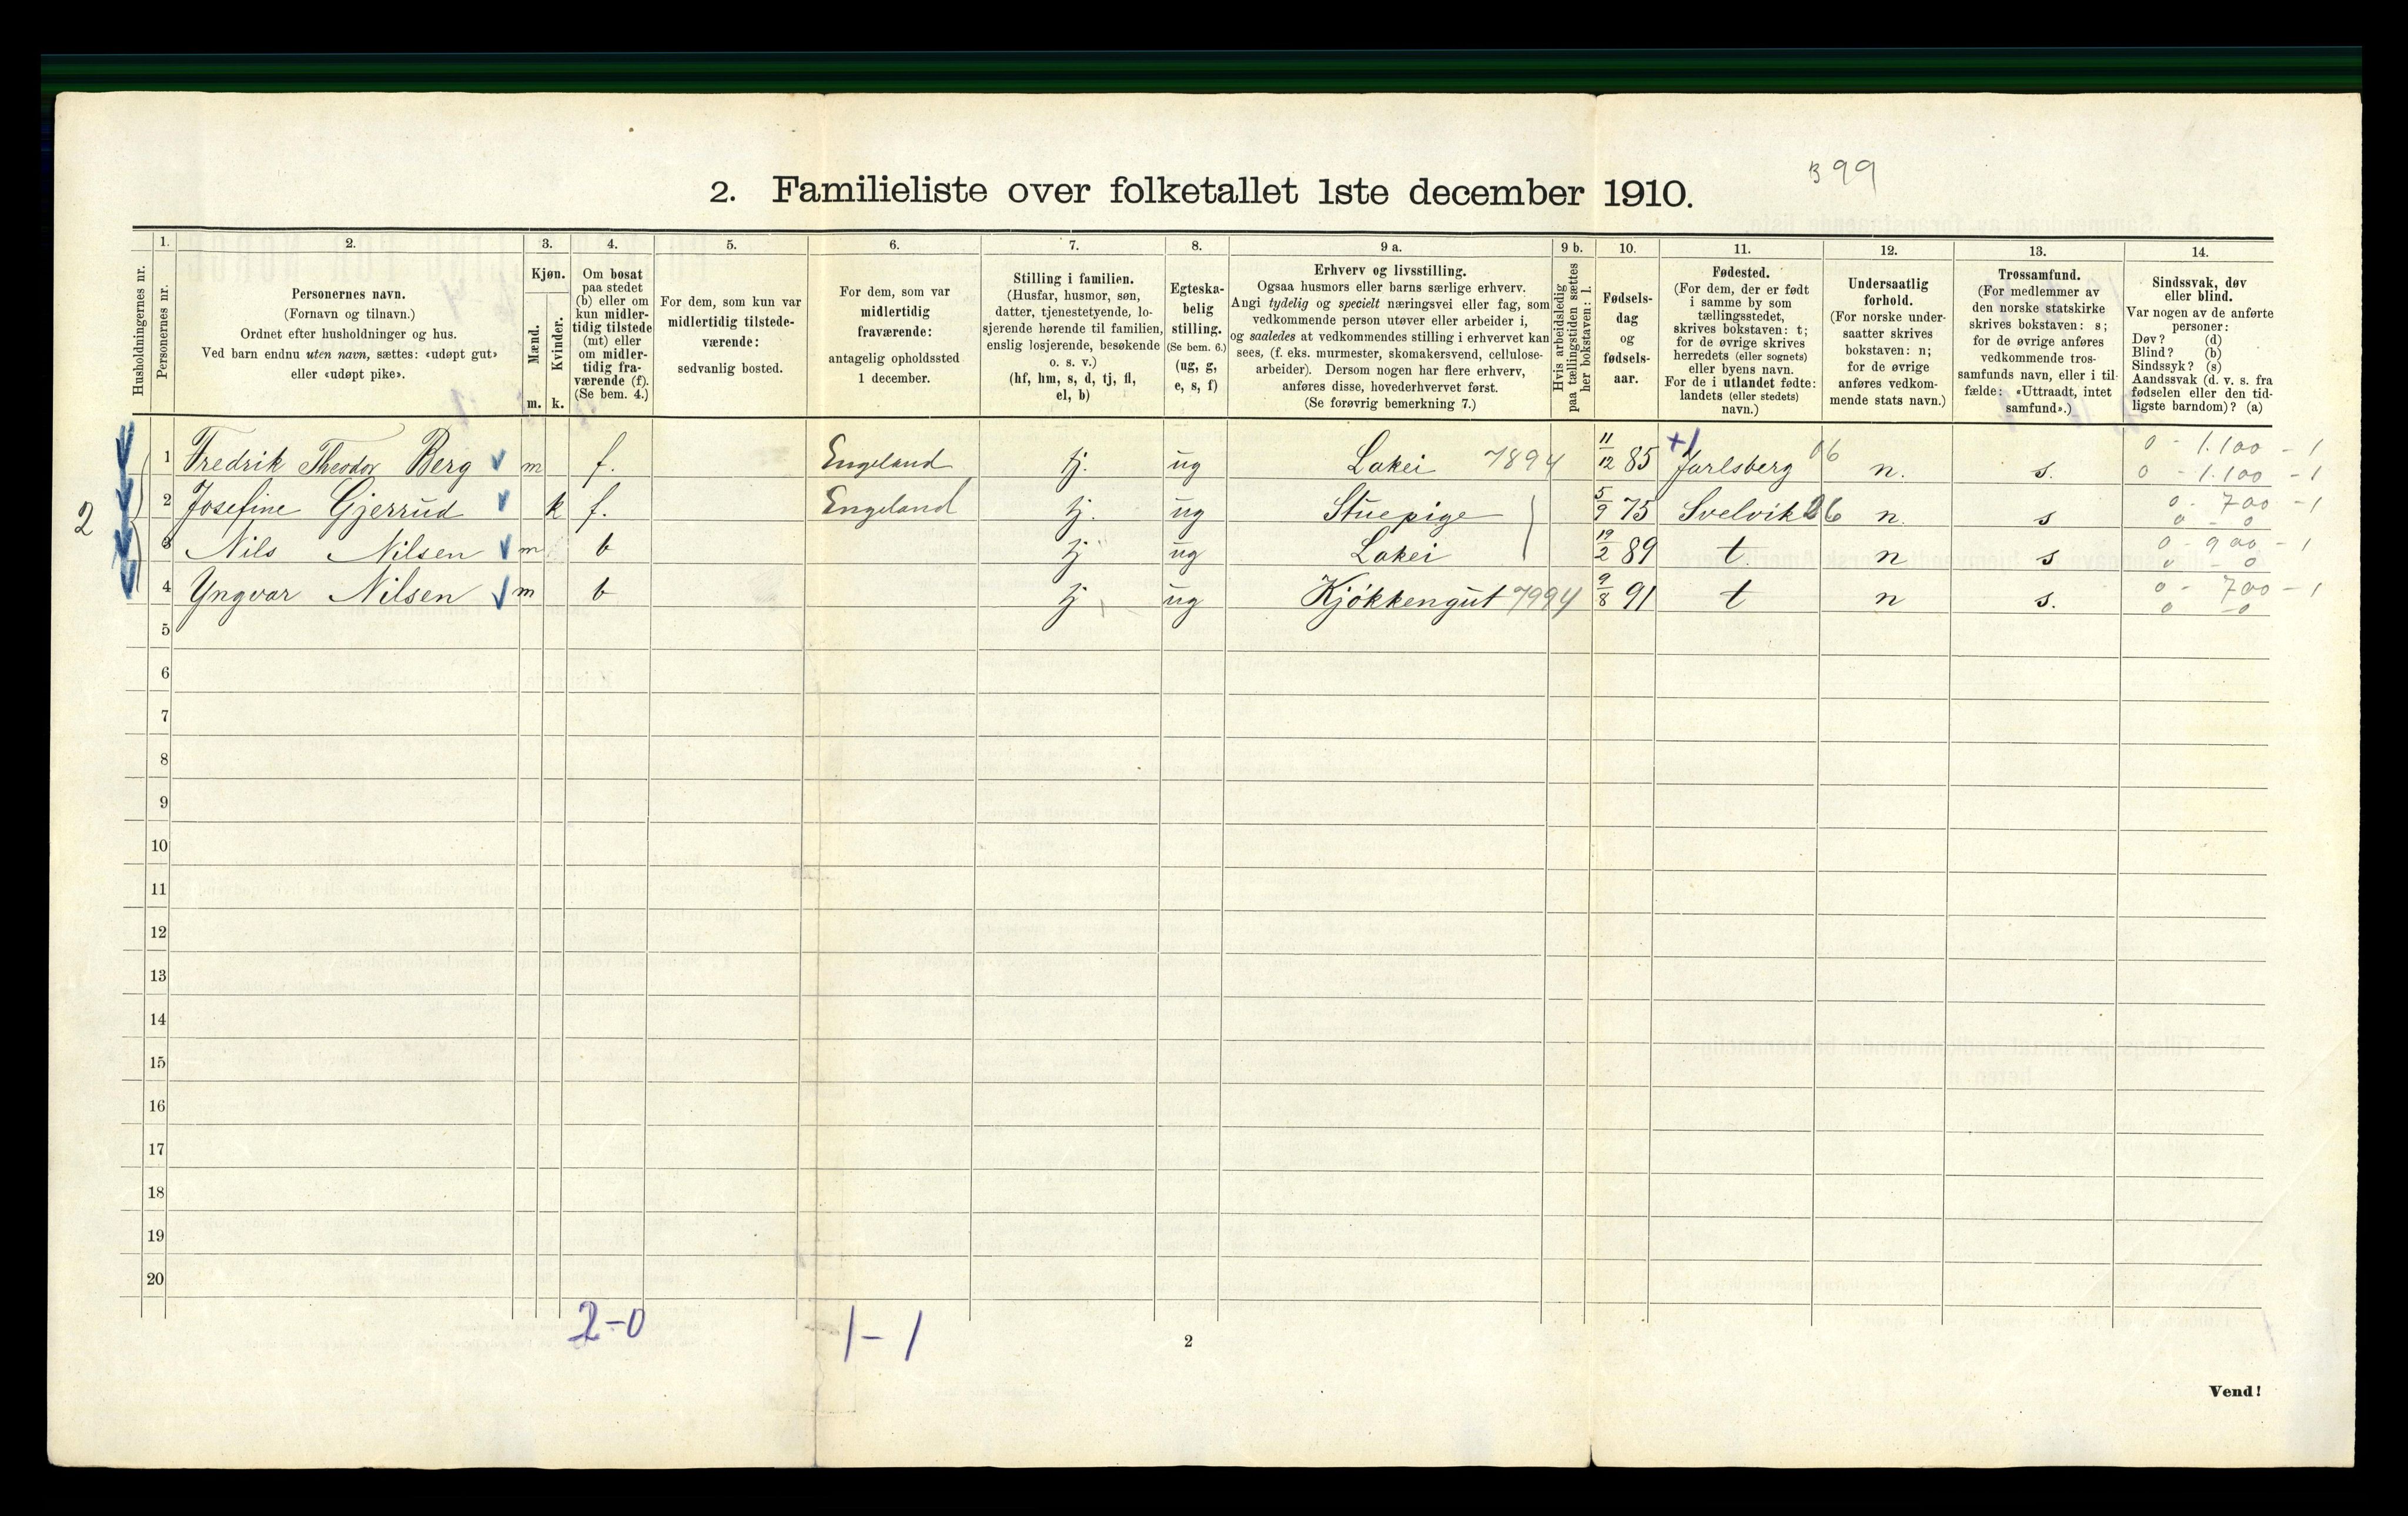 B 99
2. Familieliste over folketallet 1ste december 1910.
Husholdningernes nr.
1.
Personernes nr.
2.
Personernes navn.
(Fornavn og tilnavn.)
Ordnet efter husholdninger og hus.
Ved barn endnu uten navn, sættes: «udøpt gut»
eller «udøpt pike».
3.
Kjøn.
Mænd.
Kvinder.
m. k.
4.
Om bosat
paa stedet
(b) eller om
kun midler-
tidig tilstede
(mt) eller
om midler-
tidig fra-
værende (f).
(Se bem. 4.)
5.
For dem, som kun var
midlertidig tilstede-
værende:
sedvanlig bosted.
6.
For dem, som var
midlertidig
fraværende:
antagelig opholdssted
1 december.
7.
Stilling i familien.
(Husfar, husmor, søn,
datter, tjenestetyende, lo-
sjerende hørende til familien,
enslig losjerende, besøkende
o. s. v.)
(hf, hm, s, d, tj, fl,
el, b)
8.
Egteska-
belig
stilling.
(Se bem. 6.)
(ug, g,
e, s, f)
9 a.
Erhverv og livsstilling.
Ogsaa husmors eller barns særlige erhverv.
Angi tydelig og specielt næringsvei eller fag, som
vedkommende person utøver eller arbeider i,
og saaledes at vedkommendes stilling i erhvervet kan
sees, (f. eks. murmester, skomakersvend, cellulose-
arbeider). Dersom nogen har flere erhverv,
anføres disse, hovederhvervet først.
(Se forøvrig bemerkning 7.)
9 b.
Hvis arbeidsledig
paa tællingstiden sættes
her bokstaven: l.
10.
Fødsels-
dag
og
fødsels-
aar.
11.
Fødested.
(For dem, der er født
i samme by som
tællingsstedet,
skrives bokstaven: t;
for de øvrige skrives
herredets (eller sognets)
eller byens navn.
For de i utlandet fødte:
landets (eller stedets)
navn.)
12.
Undersaatlig
forhold.
(For norske under-
saatter skrives
bokstaven: n;
for de øvrige
anføres vedkom-
mende stats navn.)
13.
Trossamfund.
(For medlemmer av
den norske statskirke
skrives bokstaven: s;
for de øvrige anføres
vedkommende tros-
samfunds navn, eller i til-
fælde: «Uttraadt, intet
samfund».)
14.
Sindssvak, døv
eller blind.
Var nogen av de anførte
personer:
Døv? (d)
Blind? (b)
Sindssyk? (s)
Aandssvak (d. v. s. fra
fødselen eller den tid-
ligste barndom)? (a)
1 Fredrik Theodor Berg m f. Engeland tj. ug Lakei 7894 11/12 85 +1 Jarlsberg 06 n. s. 0 - 1.100 - 1
0 - 1.100 - 1
2 2 Josefine Gjerrud k f. Engeland tj. ug Stuepige 5/9 75 Svelvik 06 n. s 0 - 700 - 1
0 - 0
3 Nils Nilsen m b tj ug Lakei 19/2 89 t. n s 0 - 900 - 1
0 - 0
4 Yngvar Nilsen m b tj ug Kjøkkengut 7994 9/8 91 t n s. 0 - 700 - 1
0 - 0
5
6
7
8
9
10
11
12
13
14
15
16
17
18
19
20
2-0 1-1
2
Vend!